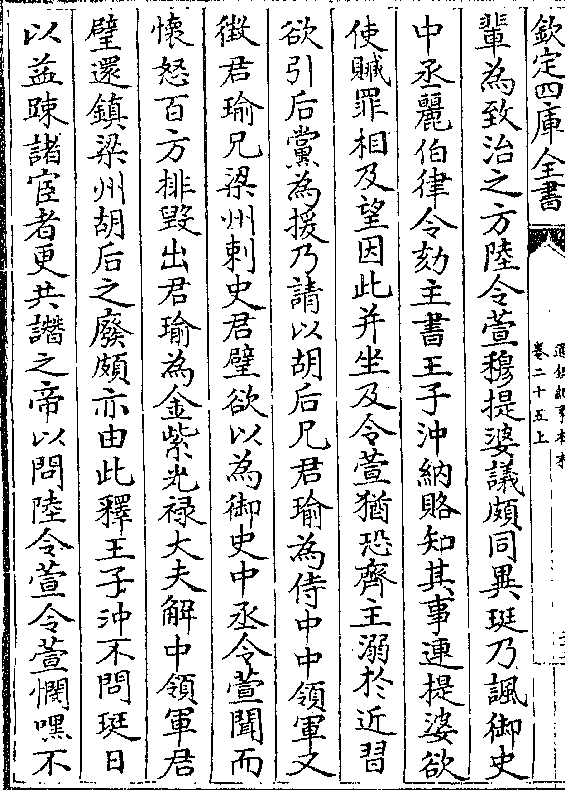 欽定四庫全書
卷二十五上
輩為致治之方陸令萱穆提婆議頗同異珽乃諷御史
中丞麗伯律令劾主書王子沖納賂知其事連提婆欲
使贓罪相及望因此并坐及令萱猶恐齊主溺於近習
欲引后黨為援乃請以胡后兄君瑜為侍中中領軍又
徵君瑜兄梁州刺史君璧欲以為御史中丞令萱聞而
懐怒百方排毀出君瑜為金紫光祿大夫解中領軍君
璧還鎮梁州胡后之廢頗亦由此釋王子沖不問珽日
以益踈諸宦者更共譖之帝以問陸令萱令萱憫嘿不